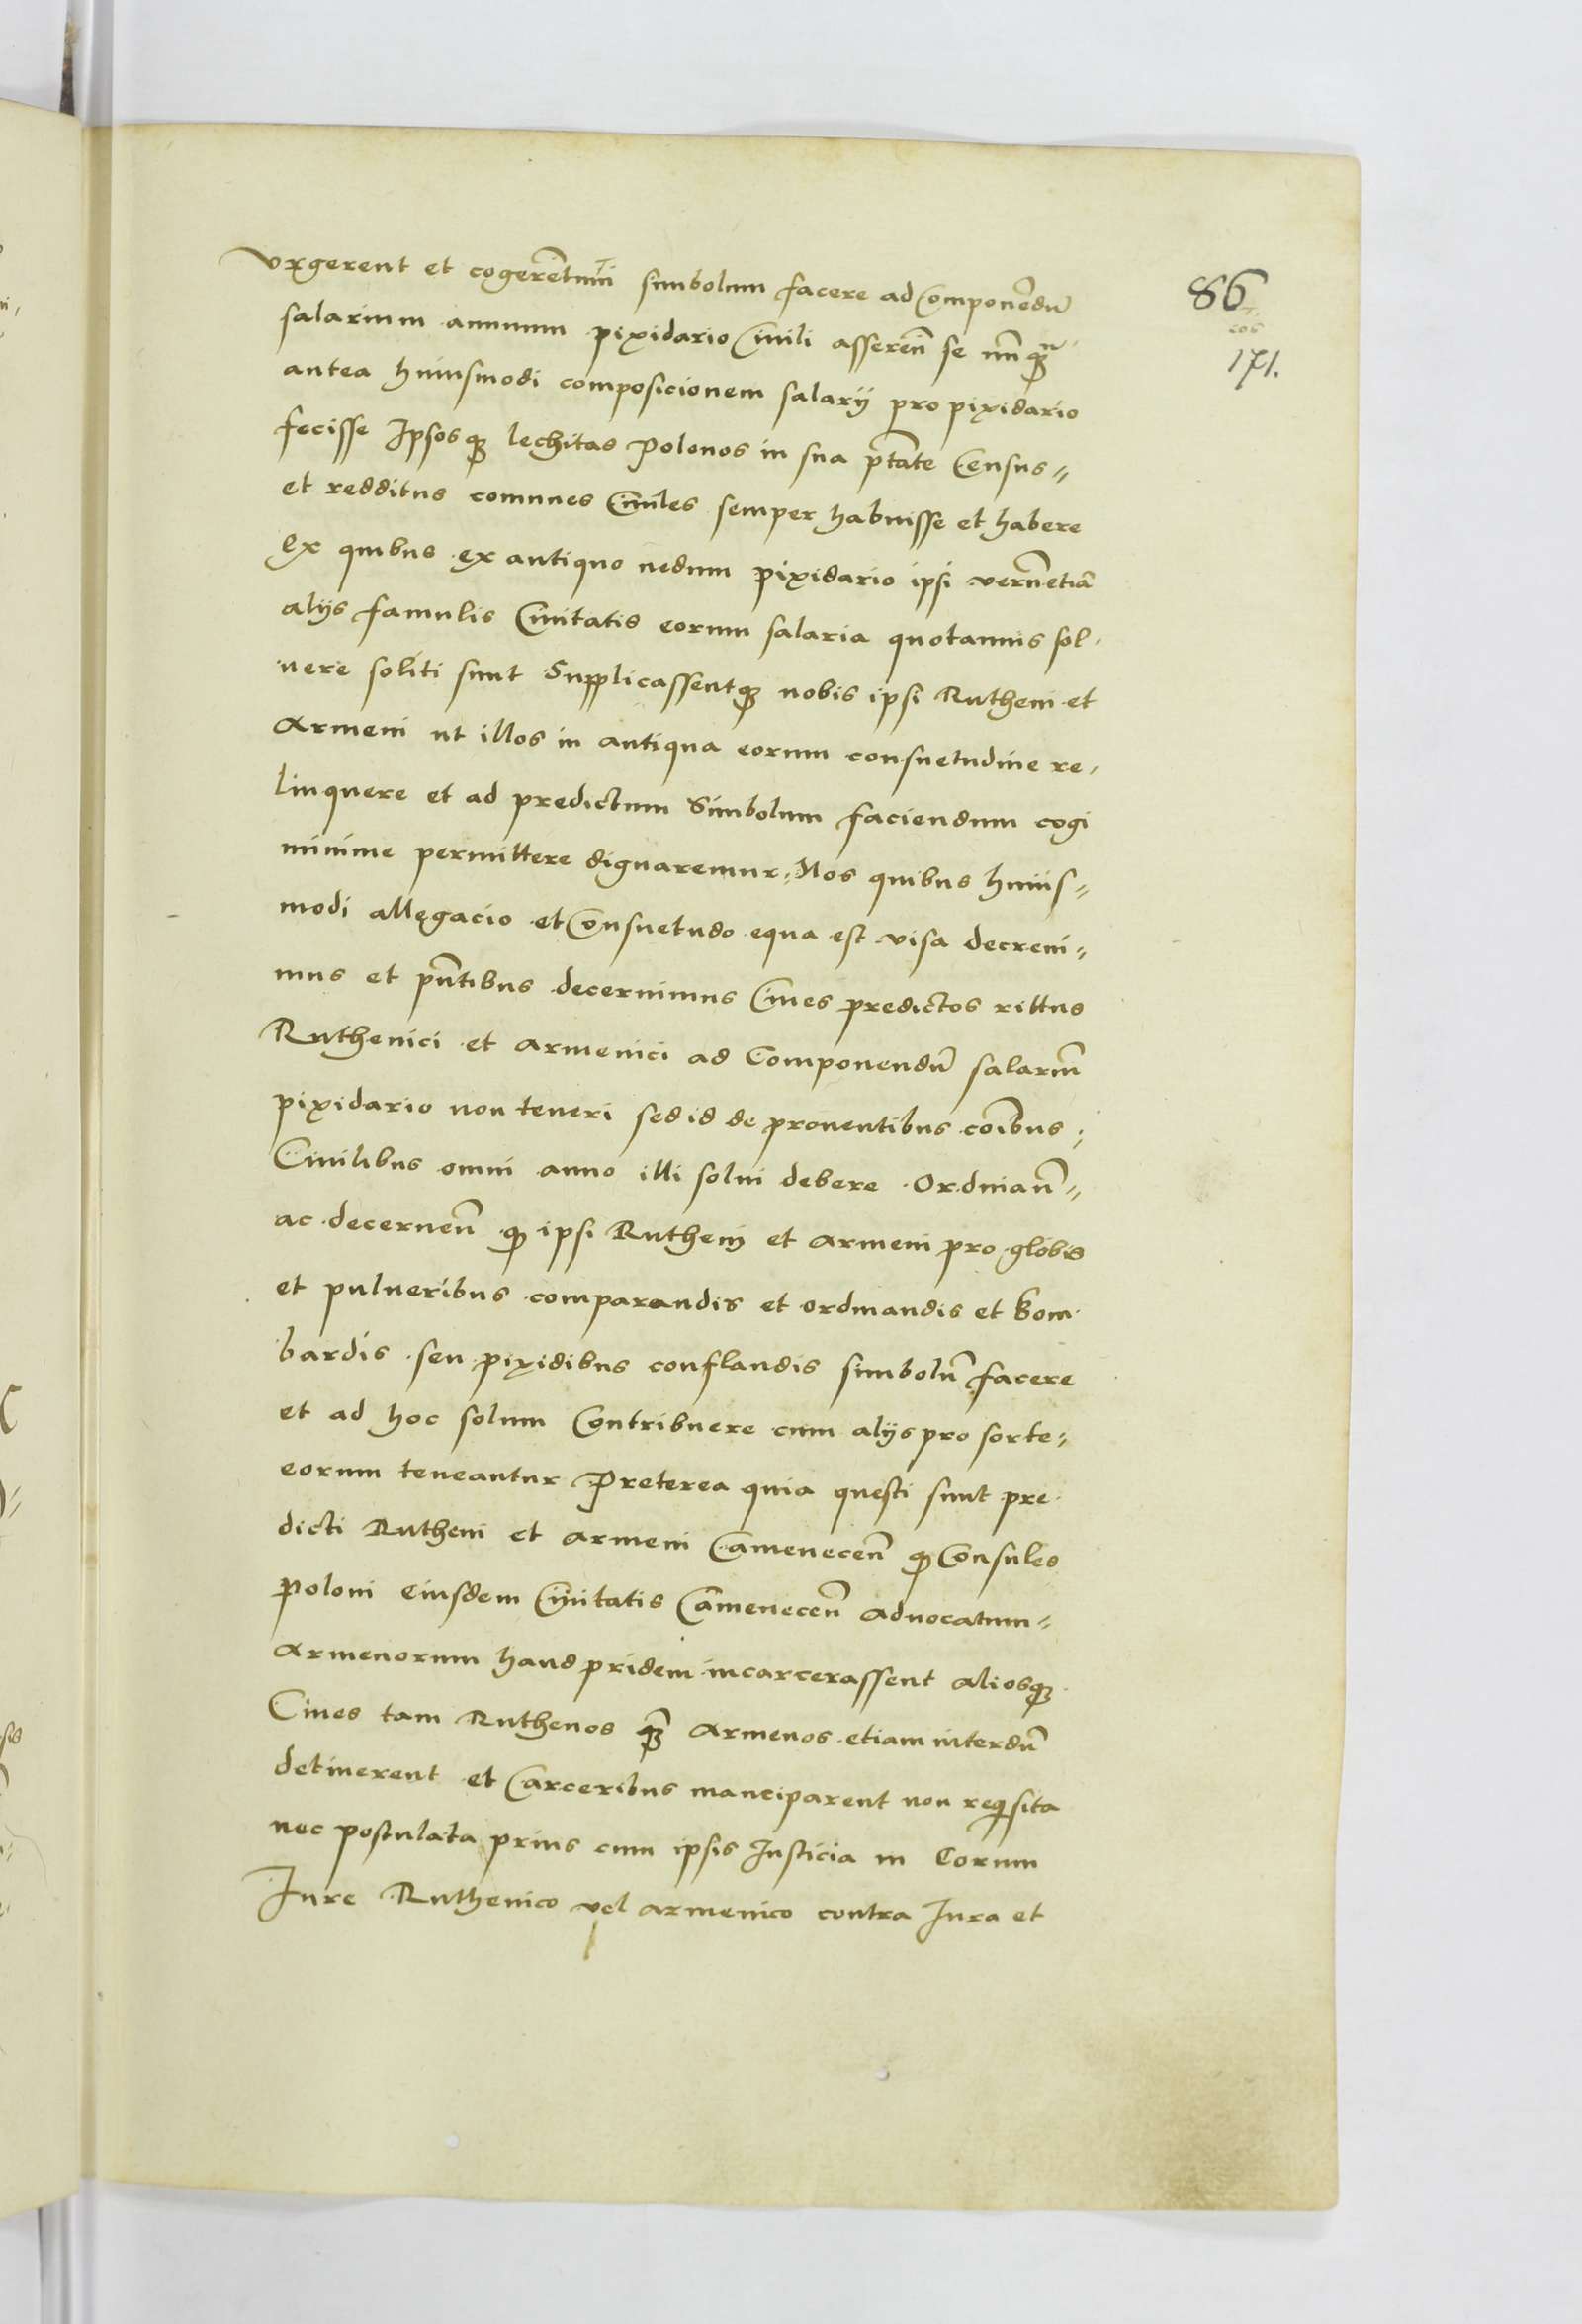 86
171.
vrgerent et cogerent simbolum facere ad Componendū
salarium annuum pixidario Ciuili asseren̄ se nunq̃
antea huiusmodi composicionem salarij pro pixidario
fecisse Ipsosq₃ lechitas Polonos in sua ptāte Census
et redditus comunes Ciuiles semper habuisse et habere
Ex quibus ex antiquo nedum pixidario ipsi verumetiā
alijs famulis Ciuitatis eorum salaria quotannis sol-
uere soliti sunt Supplicassentq₃ nobis ipsi Rutheni et
Armeni ut illos in antiqua eorum consuetudine re-
linquere et ad predictum Simbolum faciendum cogi
minime permittere dignaremur. Nos quibus huius-
modi allegacio et Consuetudo equa est visa decreui-
mus et pn̄tibus decernimus Ciues predictos rittus
Ruthenici et Armenici ad Componendū salariū
pixidario non teneri sed id de prouentibus cōibus
Ciuilibus omni anno illi solui debere Ordinan̄
ac decernen̄ q₃ ipsi Rutheni et Armeni pro globis
et pulueribus comparandis et ordinandis et bom-
bardis seu pixidibus conflandis simbolū facere
et ad hoc solum Contribuere cum alijs pro sorte
eorum teneantur Preterea quia questi sunt pre-
dicti Rutheni et Armeni Camenecen̄ q₃ Consules
poloni Eiusdem Ciuitatis Camenecen̄ Aduocatum
Armenorum haud pridem incarcerassent aliosq₃
Ciues tam Ruthenos q̃ Armenos etiam interdū
detinerent et Carceribus manciparent non requisita
nec postulata prius cum ipsis Iusticia in Eorum
Iure Ruthenico vel armenico contra Iura et